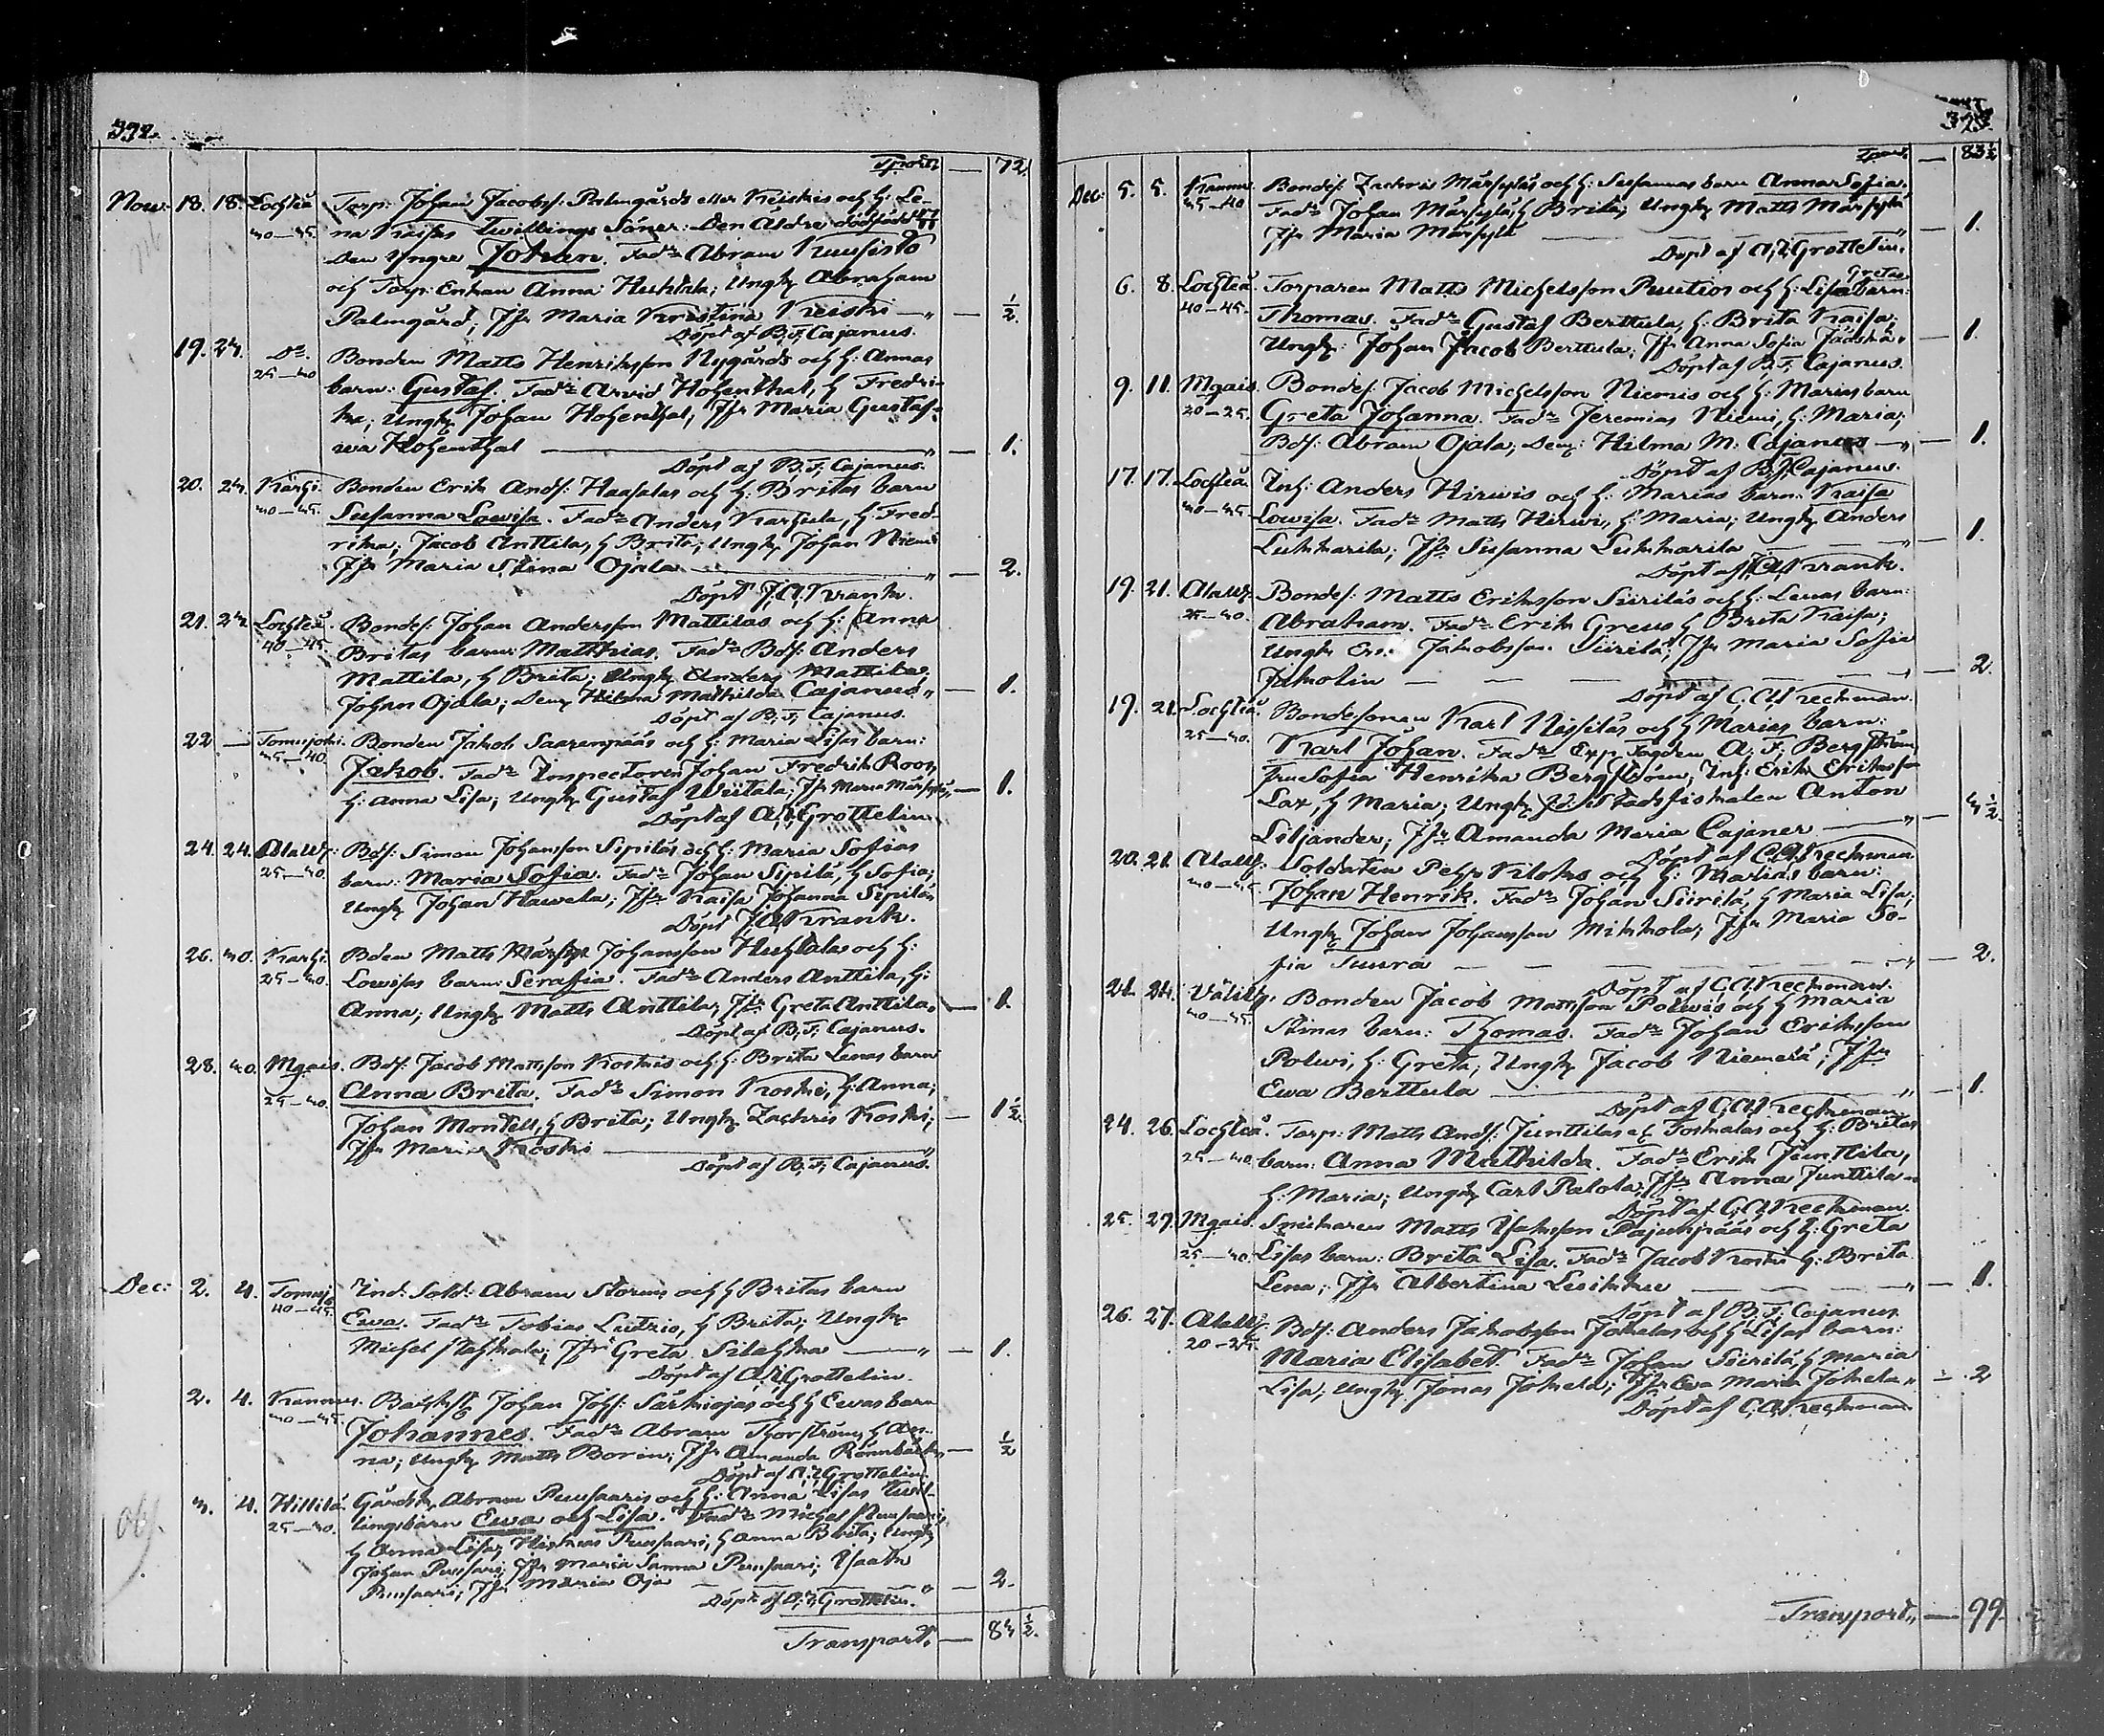 392.
Transp. — 72.
Nov: 18. 18. Lochteå Torp: Johan Jacobss: Palmgårds eller Keiskis och h: Le-
40–45. na Kaisas Twillings Söner: Den Äldre dödfödd
Den Yngre Johan. Fadr Abram Kuusisto
och Torp: Enkan Anna Huhtala; Ungk Abraham
Palmgård, Jfr Maria Kristina Keiski „ — ½.
Döpt af B. F. Cajanus.
19. 24. Do. Bonden Matts Henriksson Nygårds och h: Annas
25–30 barn: Gustaf. Fadr Arvid Hohenthal, h Fredri-
ka; Ungk Johan Hohenthal, Jfr Maria Gustaf-
wa Hohenthal „ — 1.
Döpt af B. F. Cajanus.
20. 24. Karhi. Bonden Erik Ands: Haapalas och h: Britas barn
40–45. Susanna Lowisa. Fadr Anders Karhula, h Fred-
rika; Jacob Anttila, h Brita; Ungk Johan Niemi
Jfr Maria Stina Ojala „ — 2.
Döpt J. A. Krank.
21. 24. Lochteå. Bondes: Johan Andersson Mattilas och h: Anna
40–45. Britas barn: Matthias. Fadr Bds: Anders
Mattila, h Brita; Ungk Anders Mattila;
Johan Ojala; Dem: Helena Mathilda Cajanus „ — 1.
Döpt af B. F. Cajanus.
22 — Tomujoki. Bonden Jakob Saarenpääs och h: Maria Lisas barn:
35–40. Jakob. Fadr Inspectoren Johan Fredrik Roos,
h: Anna Lisa; Ungk Gustaf Wiitala; Jfr Maria Märsylä „ — 1.
Döpt af A. Grottelin.
24. 24. Alawi. Bds: Simon Johansson Sipiläs och h: Maria Sofias
25–30. barn: Maria Sofia. Fadr Johan Sipilä, h Sofia;
Ungk Johan Hawela; Jfr Kaisa Johanna Sipilä
Döpt J. A. Krank.
26. 30. Karhi. Bden Matts Johansson Huhtalas och h:
25–30. Lowisas barn: Serafia. Fadr Anders Anttila, h:
Anna; Ungk Matts Anttila; Jfr Greta Anttila. — 1.
Döpt af B. F. Cajanus.
28. 30. Mgais. Bds: Jacob Mattsson Koskis och h: Brita Lenas barn
25–30. Anna Brita. Fadr Simon Koski, h: Anna;
Johan Montell, h Brita; Ungk Zachris Koski; — 1½.
Jfr Maria Koski „
Döpt af B. F. Cajanus.
Dec: 2. 4. Tomujo Ind: Sold: Abram Storms och h Britas barn
40–45. Ewa. Fadr Tobias Lutzio, h Brita; Ungk
Michel Stahkala; Jfr Greta Silahka „ — 1.
Döpt af A. Grottelin.
2. 4. Kannus. Johan Johs: Särkiojas och h Ewas barn
40–45. Johannes. Fadr Abram Thorström, h An-
na; Ungk Matts Borin; Jfr Amanda Rönnbäck — ½
Döpt af A. Grottelin.
3. 4. Hillilä. Abram Puusaaris och h: Anna Lisas Twil-
25–30. lingbarn Ewa och Lisa. Fadr Michel Puusaari,
h Anna Lisa; Puusaari, h Anna Brita; Ungk
Johan Puusaari; Jfr Maria Sanna Puusaari; Isaak
Puusaari; Jfr Maria Oja „ — 2.
Döpt af A. Grottelin.
Transport. — 83½.
Transp. — 83½
Dec: 5. 5. Kannus. Bondes: Zachris Märsyläs och h: Susannas barn Anna Sofia.
35–40 Fadr Johan Märsylä, h Brita; Ungk Matts Märsylä
Jfr Maria Märsylä „ — 1.
Döpt af A. Grottelin.
6. 8. Lochteå. Torparen Matts Michelsson Puutios och h: Lisa Gretas barn:
40–45. Thomas. Fadr Gustaf Berttula, h. Brita Kaisa;
Ungk: Johan Jacob Berttula; Jfr Anna Sofia „ — 1.
Döpt af B. F. Cajanus.
9. 11. Mgais. Bondes: Jacob Michelsson Niemis och h: Marias barn
20–25. Greta Johanna. Fadr Jeremias Niemi, h: Maria;
Bds: Abram Ojala; Dem: Hilma M. Cajanus „ — 1.
Döpt af B. F. Cajanus.
17. 17. Lochteå. Inh: Anders Hirwis och h: Marias barn: Kaisa
40–45. Lowisa. Fadr Matts Hirwi, h: Maria; Ungk Anders
Lukkarila; Jfr Susanna Lukkarila „ — 1.
Döpt af J. A. Krank.
19. 21. Alawi. Bondes: Matts Eriksson Siiriläs och h: Lenas barn:
25–30. Abraham. Fadr Erik Greus, h Brita Kaisa;
Ungk Jakobsson Siirilä; Jfr Maria Sofia
Jakolin „ — 2.
Döpt af C. A. Keckman.
19. 21. Lochteå. Bondesonen Karl Nissiläs och h Marias barn:
25–30. Karl Johan. Fadr Exp. Fogden A. F. Bergström,
Fru Sofia Henrika Bergström; Inh: Erik Eriksson
Lax, h Maria; Ungk Stadsfiskalen Anton
Liljander; Jfr Amanda Maria Cajaner „ — 4½
Döpt af C. A. Keckman
20. 21. Alawi. Soldaten Pehr Kloks och h: Marias barn:
40–45. Johan Henrik. Fadr Johan Siirilä, h Maria Lisa;
Ungk Johan Johansson Mikkola; Jfr Maria So-
fia Tuura „ — 2.
Döpt af C. A. Keckman.
21. 24. Väliw. Bonden Jacob Mattsson Polwis och h Maria
40–45. Stinas barn: Thomas. Fadr Johan Eriksson
Polwi, h: Greta; Ungk Jacob Niemelä; Jfr
Ewa Berttula „ — 1.
Döpt af C. A. Keckman.
24. 26. Lochteå. Torp: Matts Ands: Junttilas och h: Britas
25–30. barn: Anna Mathilda. Fadr Erik Junttila,
h: Maria; Ungk Carl Palola; Jfr Anna Junttila „
Döpt af C. A. Keckman.
25. 27. Mgais. Snickaren Matts Isaksson Pajunpääs och h: Greta
25–30. Lisas barn: Brita Lisa. Fadr Jacob Koski h: Brita
Lena; Jfr Albertina „ — 1.
Döpt af B. F. Cajanus.
26. 27. Alawi. Bds: Anders Jakobsson Jokelas och h Lisas barn:
20–25. Maria Elisabet. Fadr Johan Siirilä, h Maria
Lisa; Ungk Jonas Jokela; Jfr Ewa Maria Jokela „ — 2
Döpt af C. A. Keckman.
Transport „ — 99.